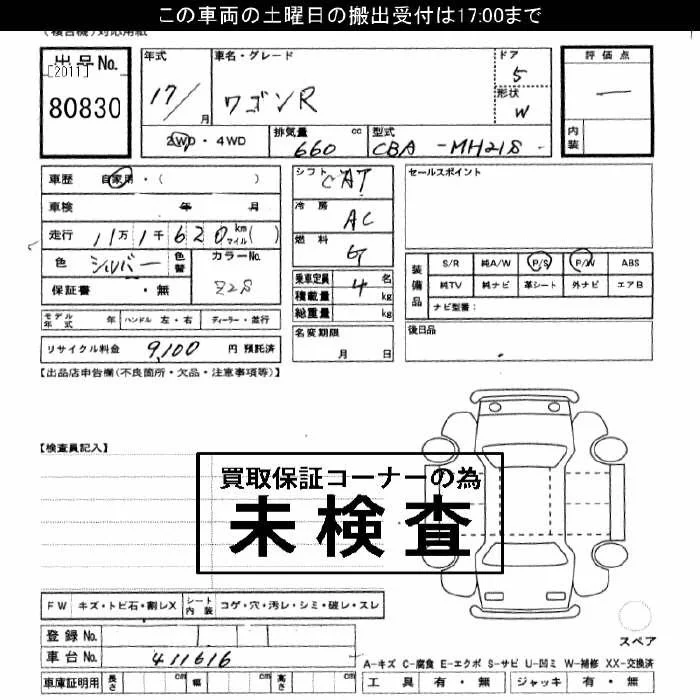 この車両の土曜日の搬出受付は17:00まで
(複合機)対応用紙
出品No.
[2011]
80830
年式 17/ 月
車名・グレード ワゴンR
ドア 5
形状 W
評価点 —
内装
2WD・4WD
排気量 660 cc
型式 CBA -MH21S
車歴 自家用・( )
車検 年 月
走行 11万1千620km マイル( )
色 シルバー 色替 カラーNo. Z2S
保証書 ・無
シフト CAT
冷房 AC
燃料 G
乗車定員 4 名
積載量 kg
総重量 kg
セールスポイント
装備品
S/R 純A/W P/S P/W ABS
純TV 純ナビ 革シート 外ナビ エアB
ナビ型番:
モデル年式 年 ハンドル 左・右 ディーラー・並行
名変期限 月 日
後日品
リサイクル料金 9,100 円 預託済
【出品店申告欄(不良箇所・欠品・注意事項等)】
【検査員記入】
買取保証コーナーの為
未検査
FW キズ・トビ石・割レX シート内装 コゲ・穴・汚レ・シミ・破レ・スレ
登録No.
車台No. 411616
車庫証明用 長さ cm 幅 cm 高さ cm
スペア
A-キズ C-腐食 E-エクボ S-サビ U-凹ミ W-補修 XX-交換済
工具 有・無 ジャッキ 有・無